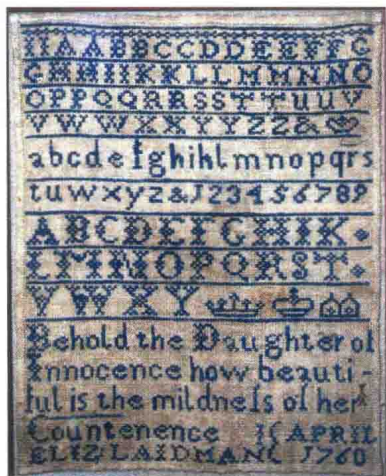 HAABBCCDDEEFFG
GHHIIKKLLMMNNO
OPPQQRRSSTTUUV
VVWWXXYYZZ&
abcdefghiklmnopqrs
tuwxyz&123456789
ABCDEFGHIK
LMNOPQRST
VWXY
Behold the Daughter of
Innocence how beauti-
ful is the mildneſs of her
Countenence 16 APRIL
ELIZ LAIDMAN 1760